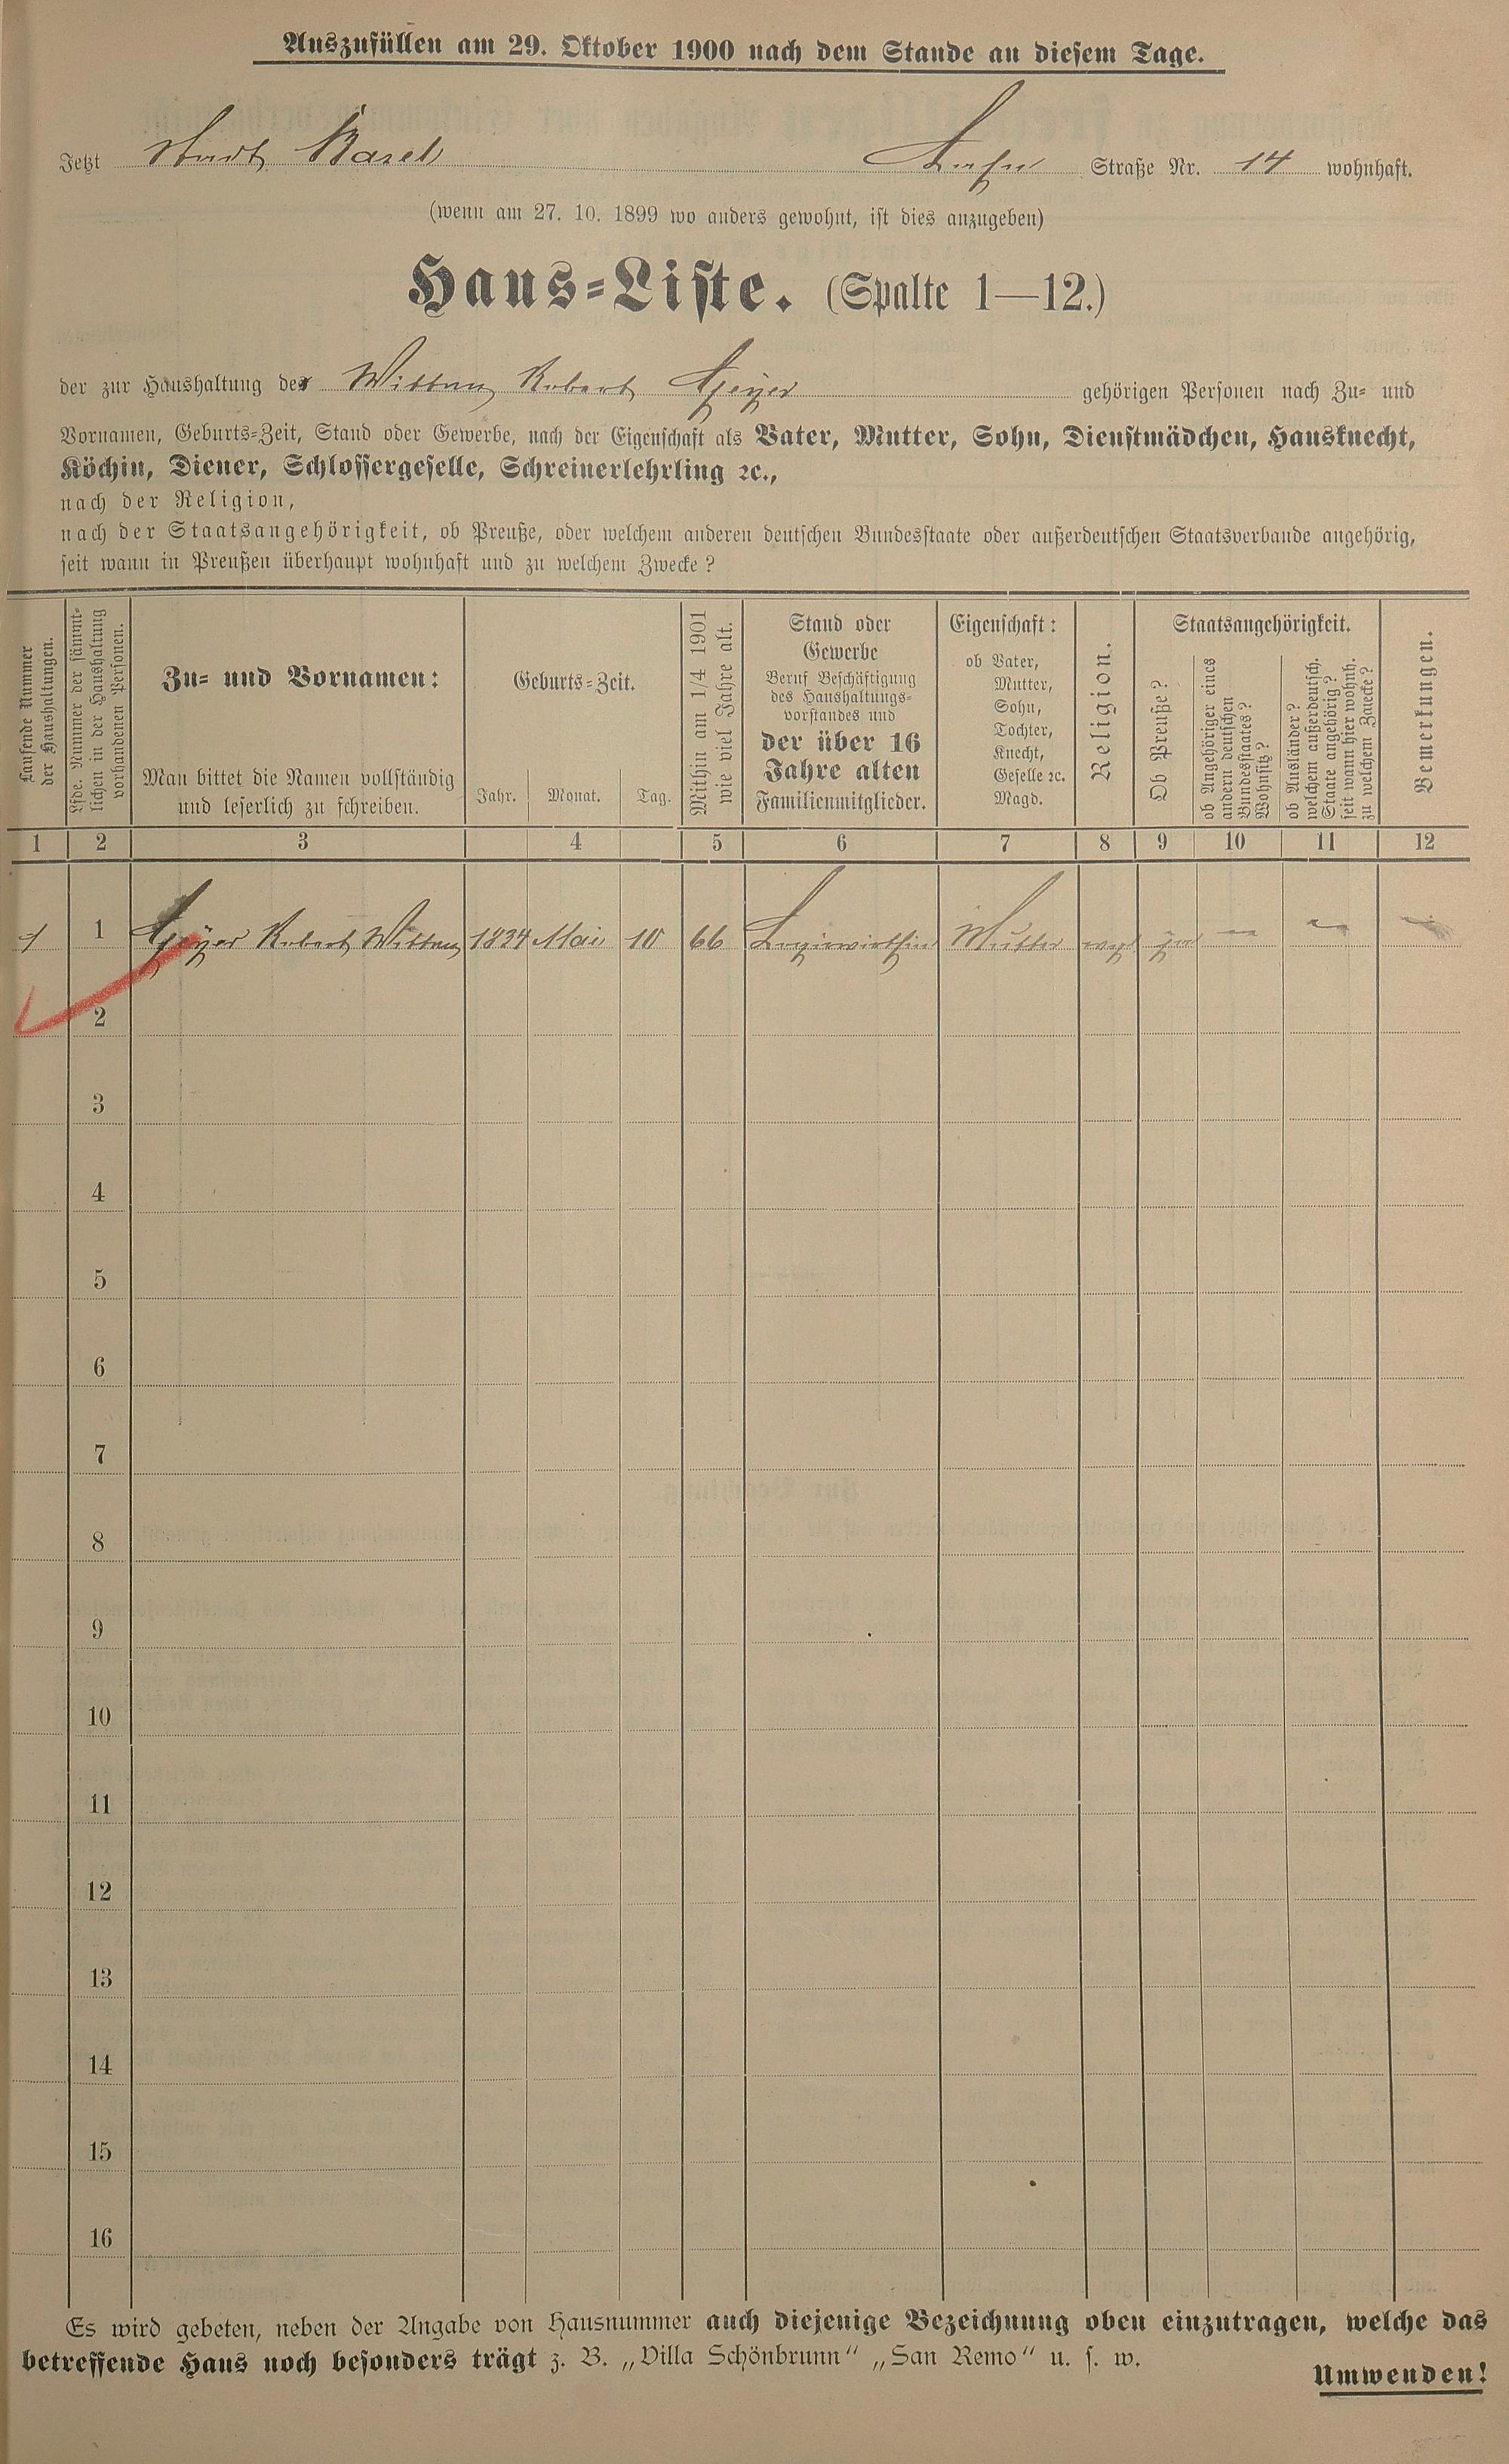 Auszufüllen am 29. Oktober 1900 nach dem Stande an diesem Tage.
Jetzt Stadt Basel Straße Nr. 14 wohnhaft.
(wenn am 27. 10. 1899 wo anders gewohnt, ist dies anzugeben)
Haus-Liste. (Spalte 1—12.)
der zur Haushaltung der Wittwe Robert Geyer gehörigen Personen nach Zu- und
Vornamen, Geburts-Zeit, Stand oder Gewerbe, nach der Eigenschaft als Vater, Mutter, Sohn, Dienstmädchen, Hausknecht,
Köchin, Diener, Schlossergeselle, Schreinerlehrling ꝛc.,
nach der Religion,
nach der Staatsangehörigkeit, ob Preuße, oder welchem anderen deutschen Bundesstaate oder außerdeutschen Staatsverbande angehörig,
seit wann in Preußen überhaupt wohnhaft und zu welchem Zwecke?
Laufende Nummer
der Haushaltungen.
Lfde. Nummer der sämmt-
lichen in der Haushaltung
vorhandenen Personen.
Zu- und Vornamen:
Man bittet die Namen vollständig
und leserlich zu schreiben.
Geburts-Zeit.
Jahr. Monat. Tag.
Mithin am 1/4 1901
wie viel Jahre alt.
Stand oder
Gewerbe
Beruf Beschäftigung
des Haushaltungs-
vorstandes und
der über 16
Jahre alten
Familienmitglieder.
Eigenschaft:
ob Vater,
Mutter,
Sohn,
Tochter,
Knecht,
Geselle ꝛc.
Magd.
Religion.
Staatsangehörigkeit.
Ob Preuße?
ob Angehöriger eines
andern deutschen
Bundesstaates?
Wohnsitz?
ob Ausländer?
welchem außerdeutsch.
Staate angehörig?
seit wann hier wohnh.
zu welchem Zwecke?
Bemerkungen.
1 2 3 4 5 6 7 8 9 10 11 12
1 1 Geyer Robert Wittwe 1834 Mai 10 66 Logirwirthin Mutter evgl — —
2
3
4
5
6
7
8
9
10
11
12
13
14
15
16
Es wird gebeten, neben der Angabe von Hausnummer auch diejenige Bezeichnung oben einzutragen, welche das
betreffende Haus noch besonders trägt z. B. „Villa Schönbrunn" „San Remo" u. s. w.
Umwenden!